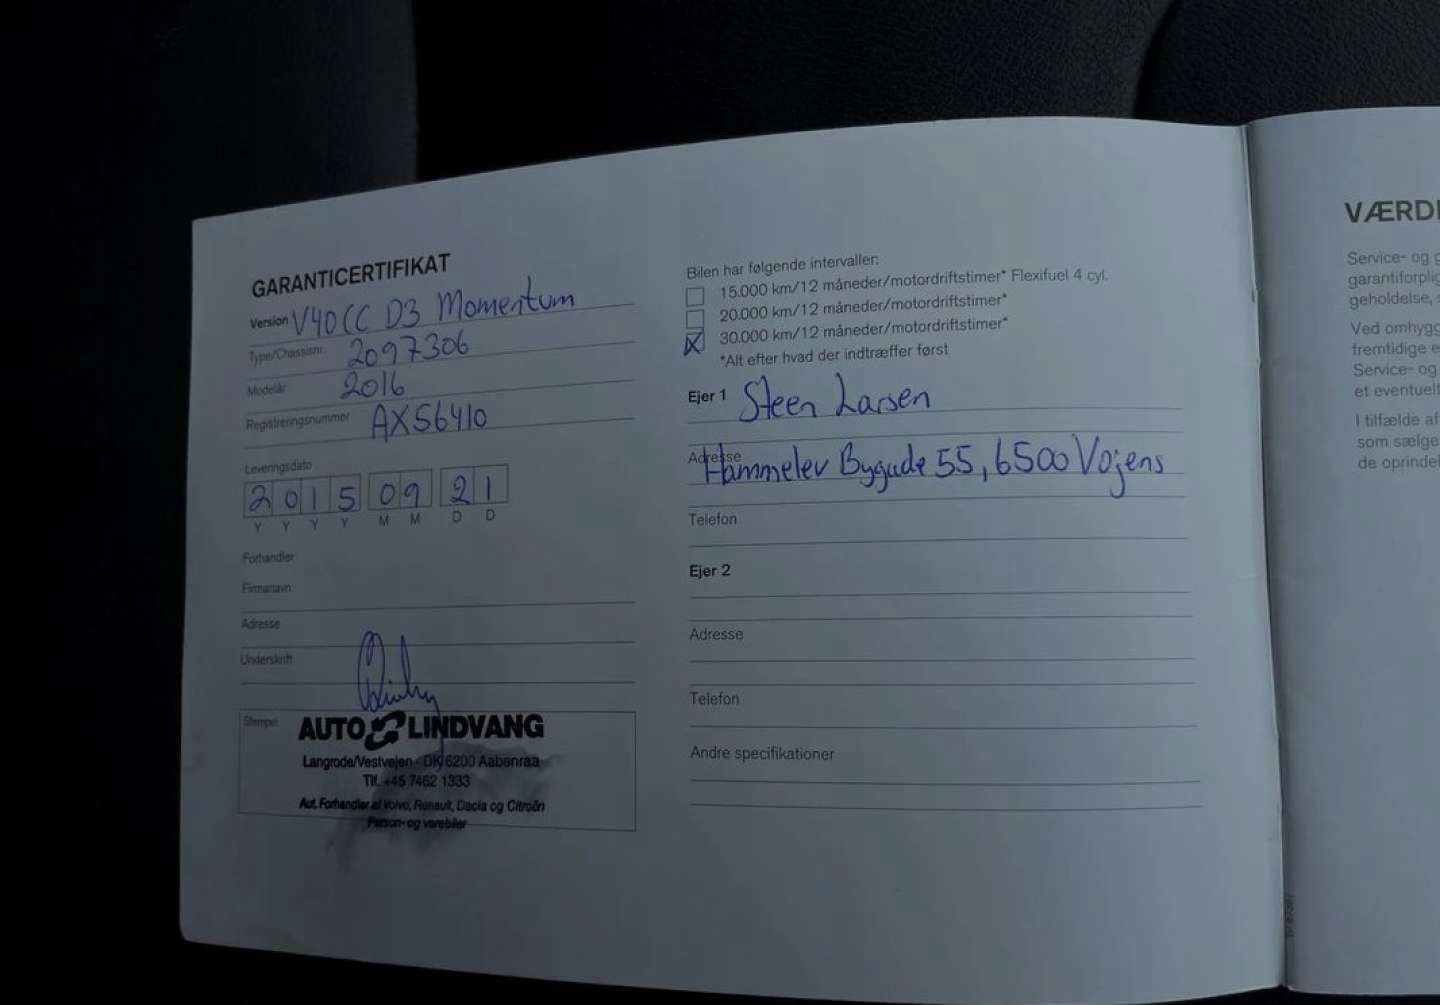 GARANTICERTIFIKAT
Version V40CC D3 Momentum
Type/Chassisnr. 2097306
Modelår 2016
Registreringsnummer AX56410
Leveringsdato
2015 09 21
Y Y Y Y M M D D
Forhandler
Firmanavn
Adresse
Underskrift
Stempel
AUTO LINDVANG
Langrode/Vestvejen - DK 6200 Aabenraa
Tlf. +45 7462 1333
Aut. Forhandler af Volvo, Renault, Dacia og Citroën
Person- og varebiler
Bilen har følgende intervaller:
15.000 km/12 måneder/motordriftstimer* Flexifuel 4 cyl.
20.000 km/12 måneder/motordriftstimer*
30.000 km/12 måneder/motordriftstimer*
*Alt efter hvad der indtræffer først
Ejer 1 Steen Larsen
Adresse Hammelev Bygade 55, 6500 Vojens
Telefon
Ejer 2
Adresse
Telefon
Andre specifikationer
VÆRDI
Service- og g
garantiforplig
geholdelse, s
Ved omhygg
fremtidige e
Service- og
et eventuelt
I tilfælde af
som sælge
de oprindel